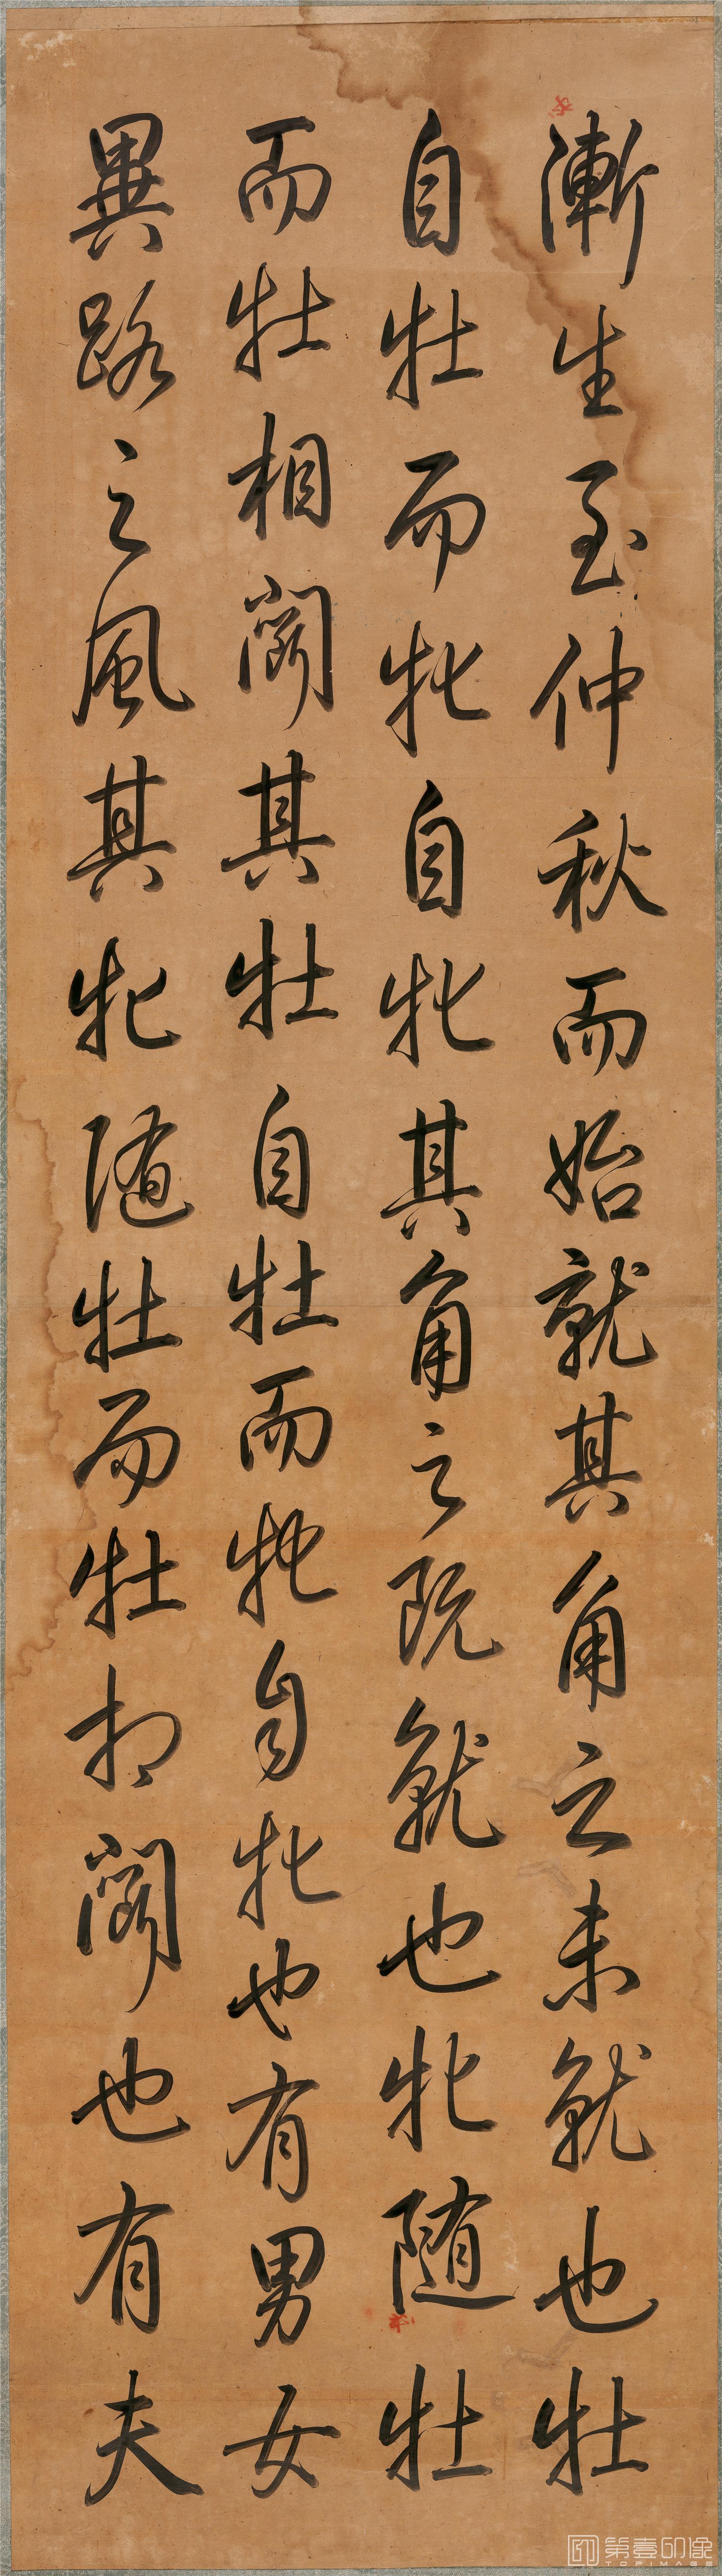 漸生至仲秋而始就其角之未就也牡
自牡而牝自牝其角之既就也牝随牡
而牡相鬬其牡自牡而牝自牝也有男女
異路之風其牝随牡而牡相鬬也有夫
第壹印像
TOPIMAGE